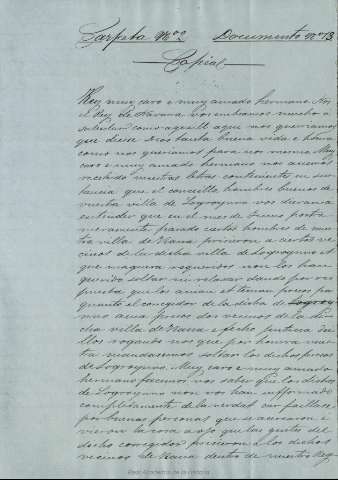 Carpeta Nº 2 Documento nº 13
Copia
Rey muy caro e muy amado hermano. Nos
el Rey de Navarra vos embiamos mucho a
saludar como aquell aqui nos querriamos
que diese Dios tanta buena vida e honra
como nos querriamos para nos mismo. Muy
caro e muy amado hermano nos avemos
recebido vuestras letras contenientes en sus
tancia que el conceillo hombres buenos de
vuestra villa de Logroynno vos davan a
entender que en el mes de Jenero postre
meramente passado ciertos hombres de nues
tra villa de Viana prisieron a ciertos ve
cinos de la dicha villa de Logroynno et
que maguera requeridos non los han
querido soltar ni relaxar dando por res
puesta que los avian et tenian presos por
quanto el corregidor de la dicha de Logroy
nno avia preso dos vecinos de la di
cha villa de Viana e fecho justicia de
llos rogando nos que por honra vues
tra mandassemos soltar los dichos presos
de Logroynno. Muy caro e muy amado
hermano facemos vos saber que los dichos
de Logroynno non vos han informado
completamente de la verdat car
por buenas personas que se acercaron e
vieron la cosa a ojo que las gentes del
dicho corregidor prisieron a los dichos
vecinos de Viana dentro de nuestro Reg
Real Academia de la Historia